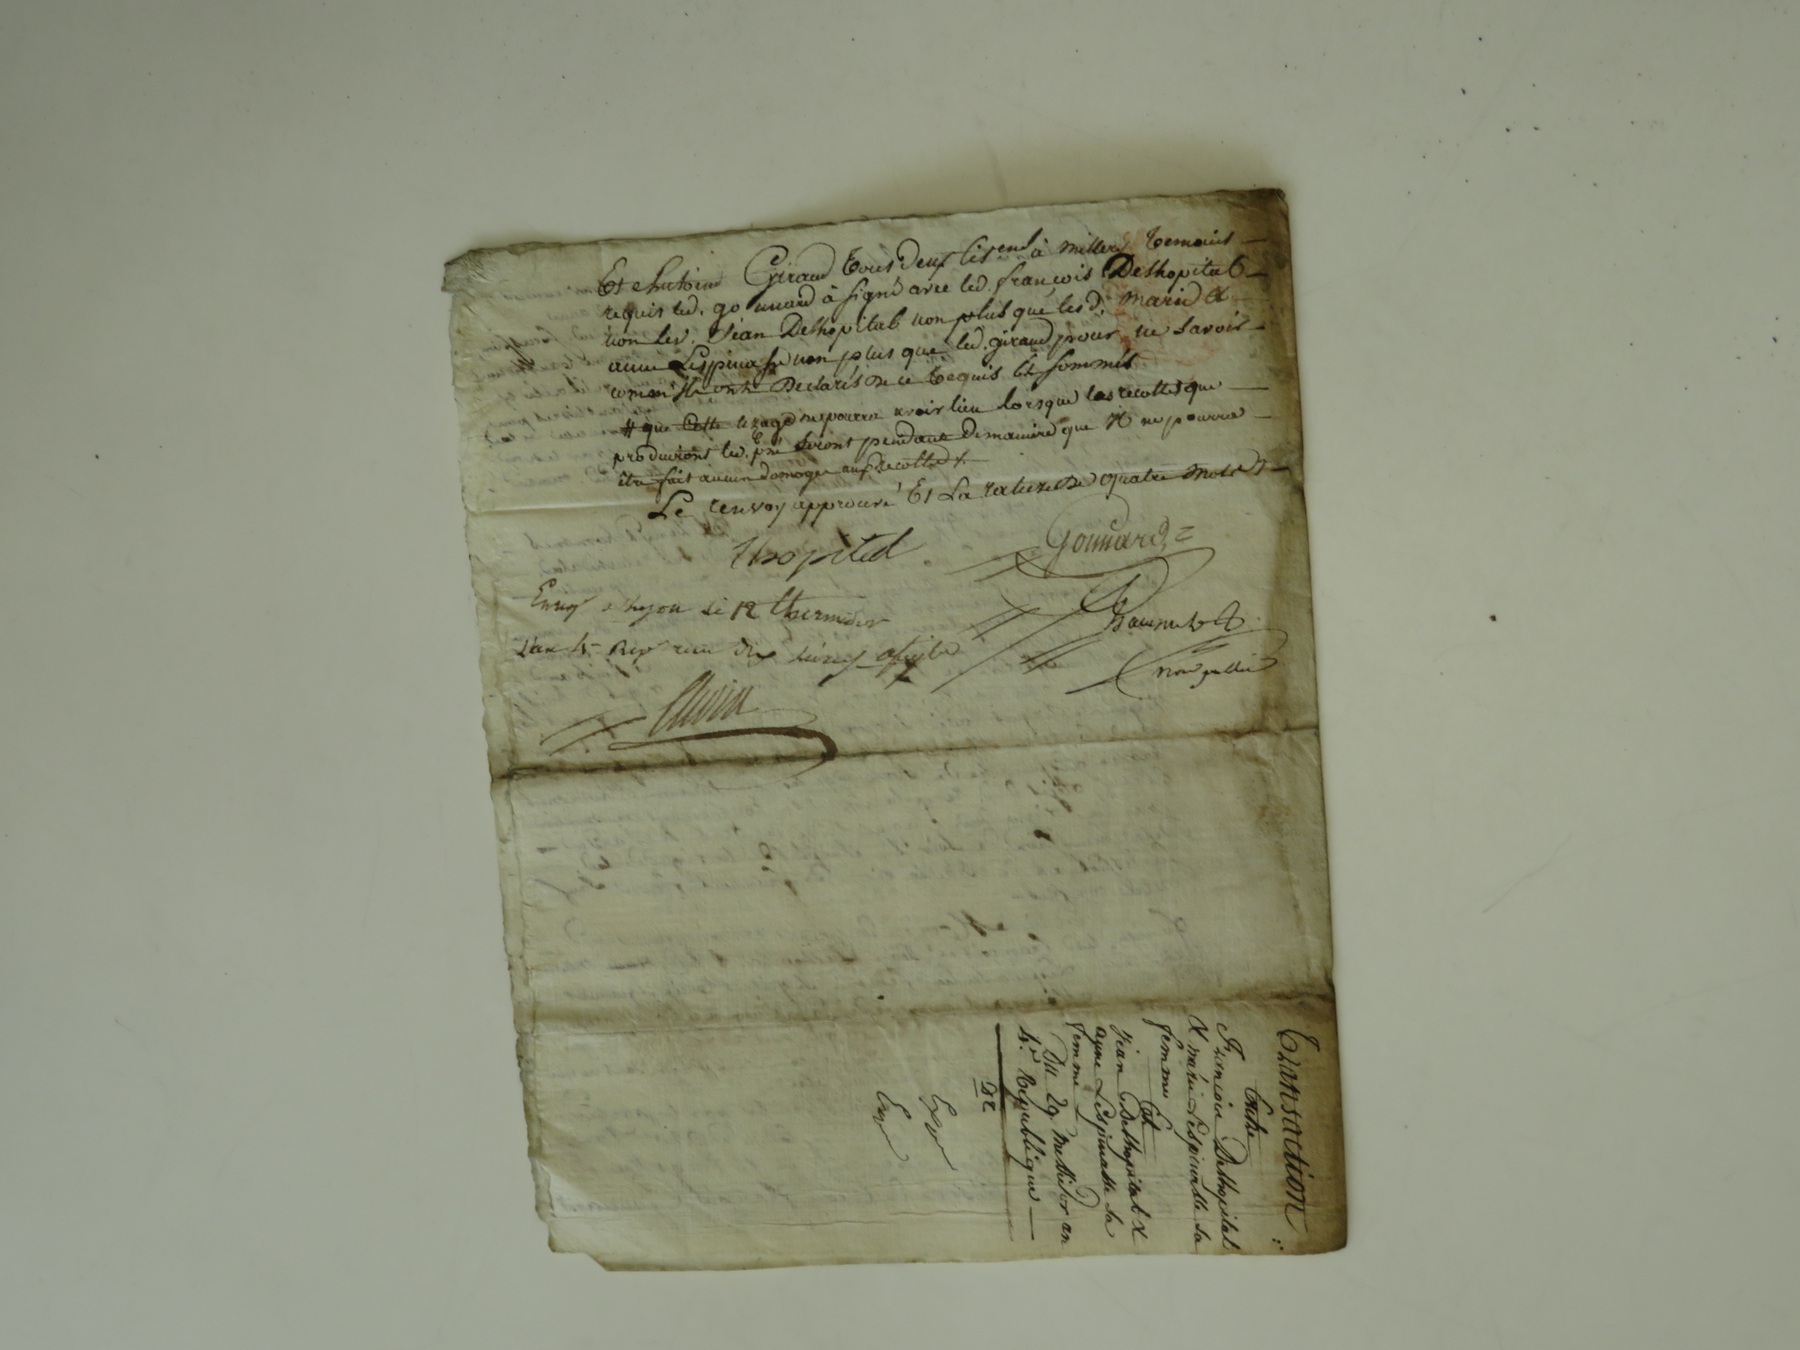 Et Antoine Giraud tous deux cit.ens à Millery temoins
requis led. gonnard à signé avec led. françois Delhopital
non led. Jean Delhopital non plus que lesd. marie &
anne Lespinasse non plus que led. giraud pour ne savoir
comm'ils ont Declarés de ce Requis et sommés
# que Cette uzage ne pourra avoir lieu lorsque les recoltes que
produiront led. pré seront pendante De maniere que Il ne pourra
être fait aucun domage aux Recoltes
Le renvoy approuvé Et La rature De quatre Mots
Lhopital
Gonnard
Enreg. a Lyon le 12 thermidor
L'an 4e Rep. reçu dix livres
Transaction
Entre
François Delhopital
& marie Lespinasse sa
femme
Et
Jean Delhopital &
anne Lespinasse sa
femme
Du 29 Messidor an
4.e Republique
Exp